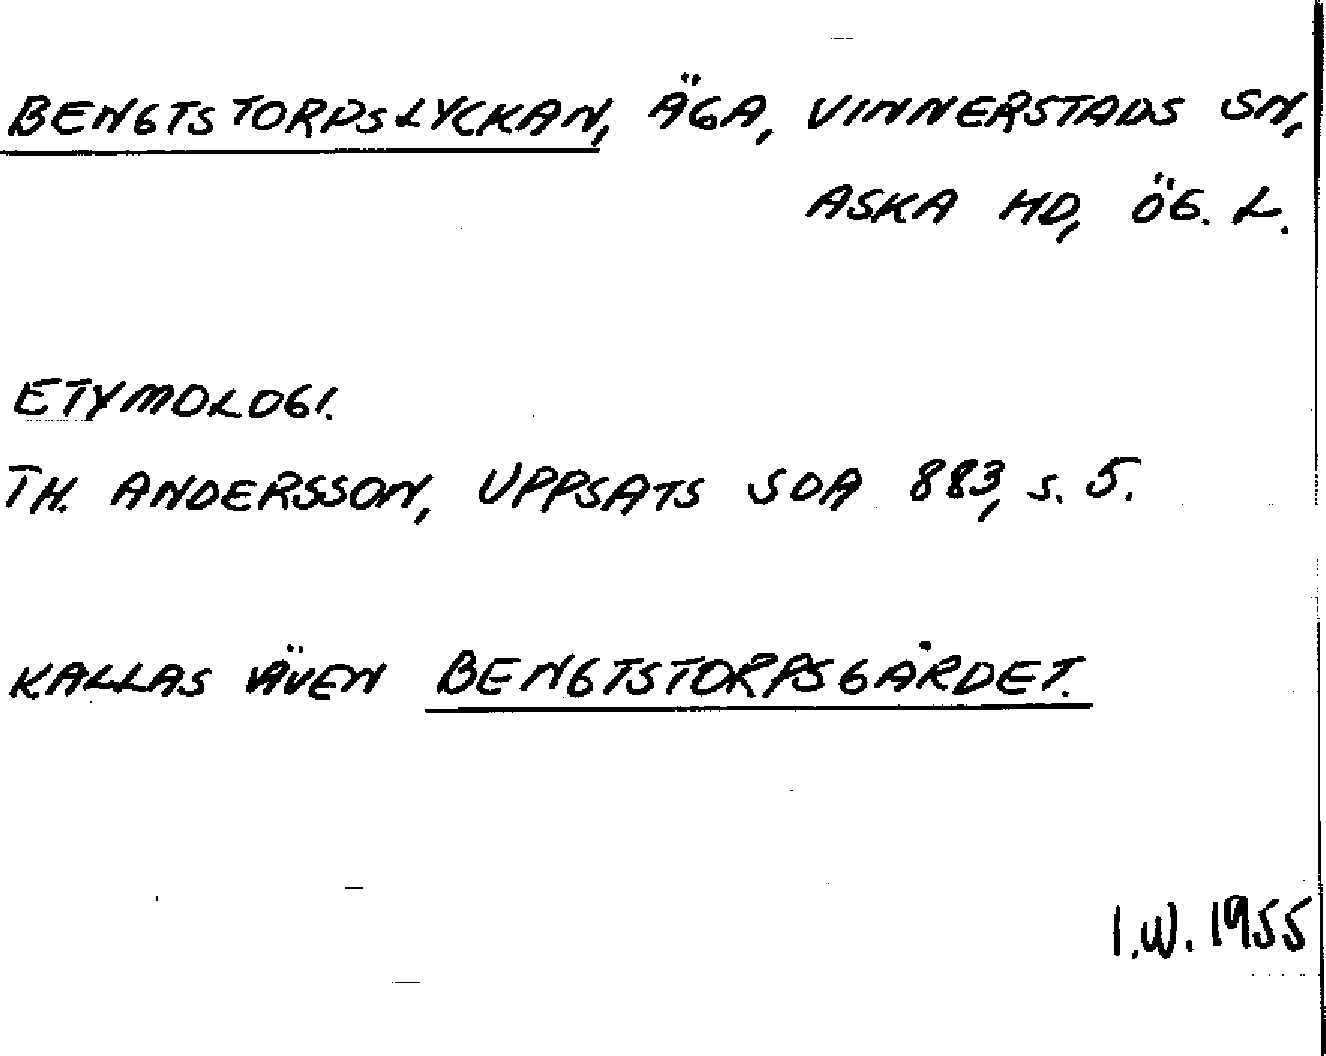 BENGTSTORPSLYCKAN, ÄGA, VINNERSTADS SN,
ASKA HD, ÖG. L.
ETYMOLOGI.
TH. ANDERSSON, UPPSATS SOA 883, s. 5.
KALLAS ÄVEN BENGTSTORPSGÄRDET.
I.W. 1955